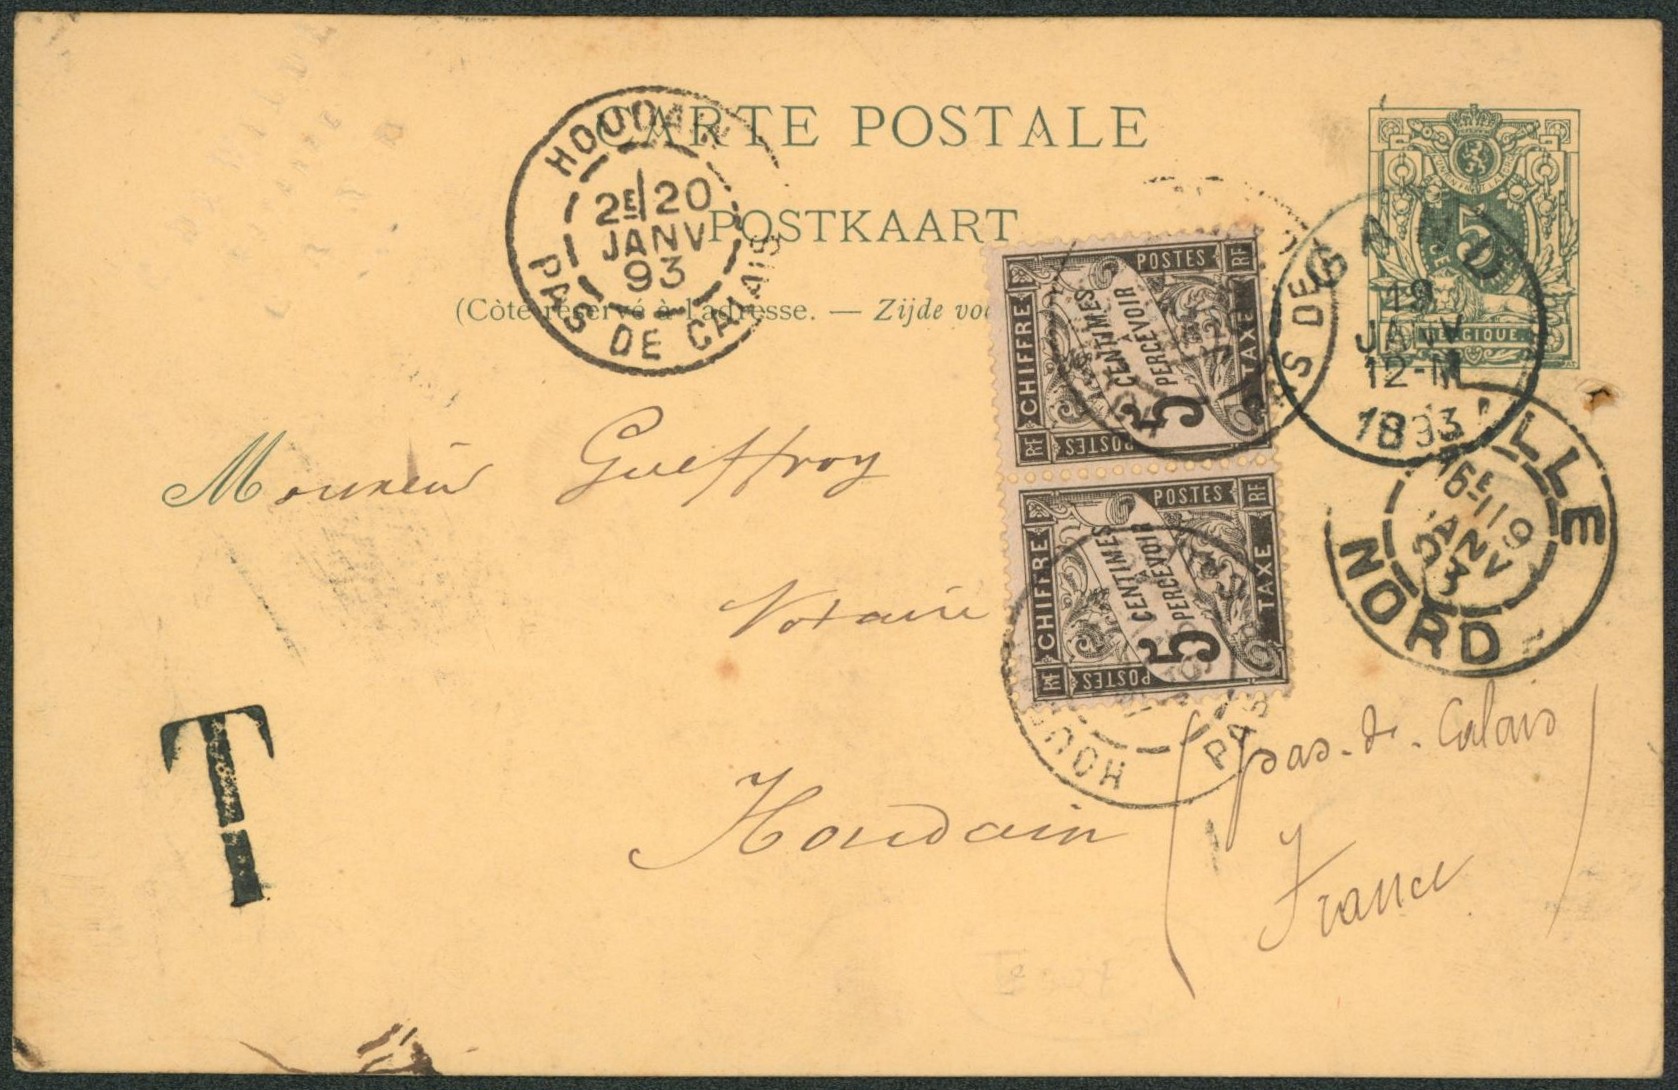 CARTE POSTALE
POSTKAART
(Côté réservé à l'adresse. — Zijde voo
HOUDAIN
2E/20
JANV
93
PAS DE CALAIS
5
BELGIQUE
GAND
19
JANV
12-M
1893
LILLE
6E 19
JANV
93
NORD
POSTES RF
CHIFFRE
5 CENTIMES
À
PERCEVOIR
TAXE
RF POSTES
POSTES RF
CHIFFRE
5 CENTIMES
À
PERCEVOIR
TAXE
RF POSTES
PAS DE
HOUD
PAS
Monsieur Gueffroy
Notaire
Houdain
(pas-de-Calais)
France
T